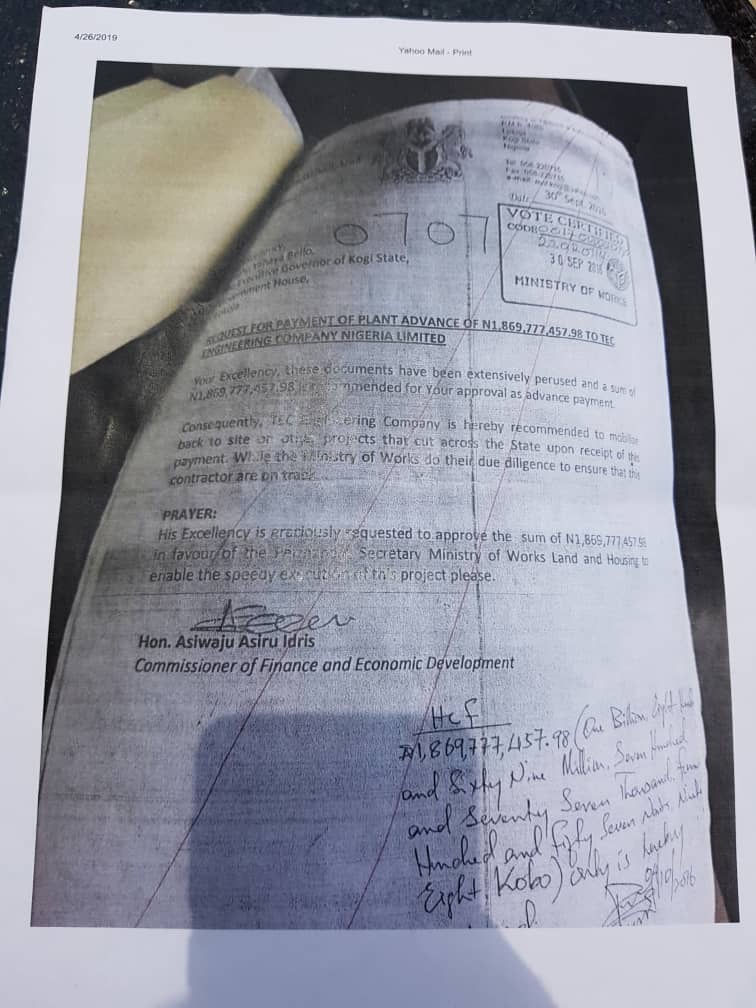 4/26/2019
Yahoo Mail - Print
Kogi State
Nigeria
Date 30th Sept. 2016
0707
VOTE CERTIFIED
CODE
30 SEP 2016
MINISTRY OF WORKS
Bello,
Executive Governor of Kogi State,
Government House,
REQUEST FOR PAYMENT OF PLANT ADVANCE OF N1,869,777,457.98 TO TEC
ENGINEERING COMPANY NIGERIA LIMITED
Your Excellency, these documents have been extensively perused and a sum of
N1,869,777,457.98 is recommended for Your approval as advance payment.
Consequently, TEC Engineering Company is hereby recommended to mobilize
back to site on other projects that cut across the State upon receipt of this
payment. While the Ministry of Works do their due diligence to ensure that this
contractor are on track.
PRAYER:
His Excellency is graciously requested to approve the sum of N1,869,777,457.98
in favour of the Permanent Secretary Ministry of Works Land and Housing to
enable the speedy execution of this project please.
Hon. Asiwaju Asiru Idris
Commissioner of Finance and Economic Development
HCF
₦1,869,777,457.98 (One Billion, Eight Hundred
and Sixty Nine Million, Seven Hundred
and Seventy Seven Thousand, Four
Hundred and Fifty Seven Naira, Ninety
Eight Kobo) only is hereby
04/10/2016